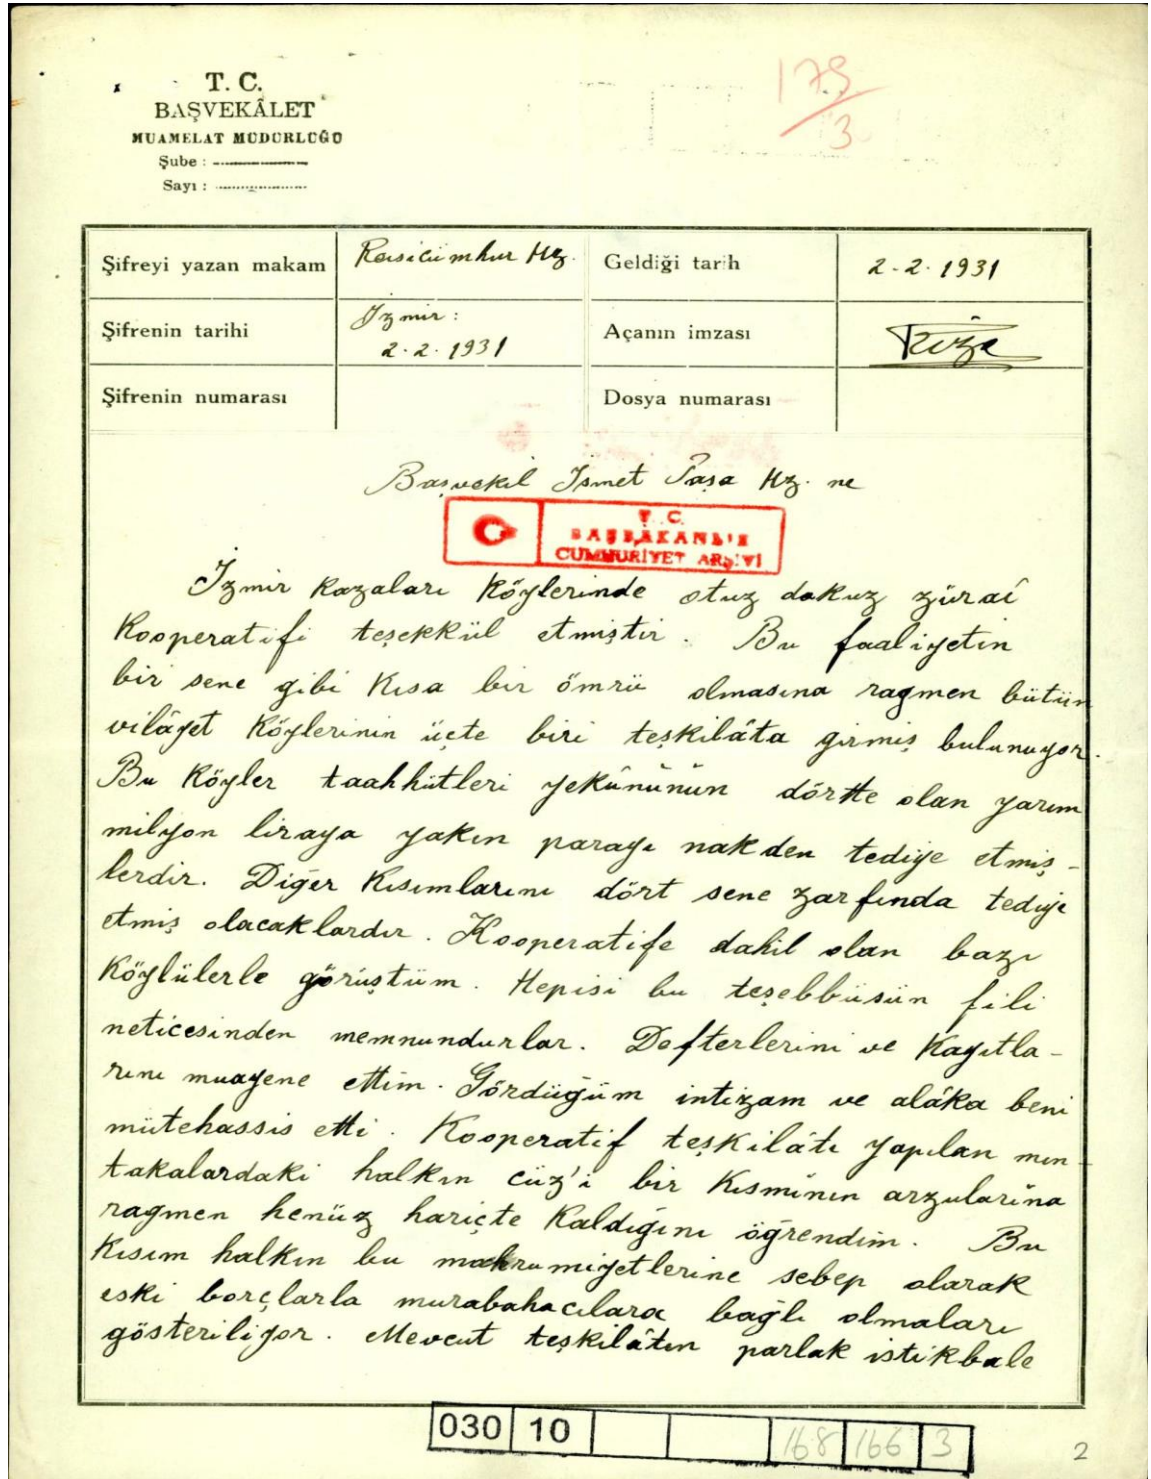 175/3
T. C.
BAŞVEKÂLET
MUAMELAT MÜDÜRLÜĞÜ
Şube :
Sayı :
Şifreyi yazan makam Reisicümhur Hz. Geldiği tarih 2-2-1931
Şifrenin tarihi İzmir: 2.2.1931 Açanın imzası Riza
Şifrenin numarası Dosya numarası
Başvekil İsmet Paşa Hz. ne
T. C.
BAŞBAKANLIK
CUMHURİYET ARŞİVİ
İzmir kazaları köylerinde otuz dokuz züraî
kooperatifi teşekkül etmiştir. Bu faaliyetin
bir sene gibi kısa bir ömrü olmasına ragmen bütün
vilâyet köylerinin üçte biri teşkilâta girmiş bulunuyor.
Bu köyler taahhütleri yekûnünün dörtte olan yarım
milyon liraya yakın parayı nakden tediye etmiş-
lerdir. Diğer kısımlarını dört sene zarfında tediye
etmiş olacaklardır. Kooperatife dahil olan bazı
köylülerle görüştüm. Hepisi bu teşebbüsün fili
neticesinden memnundurlar. Defterlerini ve kayıtla-
rını muayene ettim. Gördüğüm intizam ve alâka beni
mütehassis etti. Kooperatif teşkilâtı yapılan mın-
takalardaki halkın cüz'i bir kısmının arzularına
ragmen henüz hariçte kaldığını öğrendim. Bu
kısım halkın bu mahrumiyetlerine sebep olarak
eski borçlarla murabahacılara bağlı olmaları
gösteriliyor. Mevcut teşkilâtın parlak istikbale
030 10 168 166 3
2